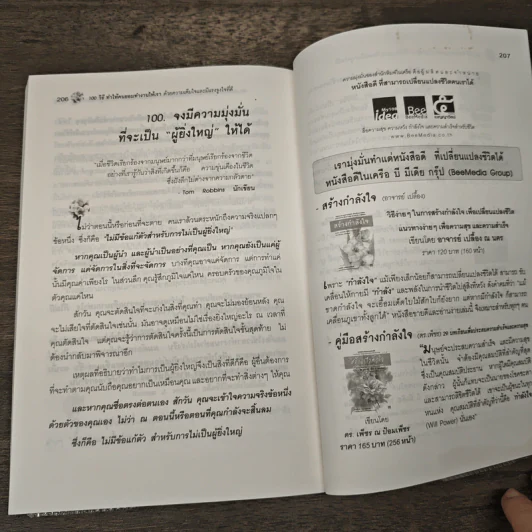 206
100 วิธี ทำให้คนยอมทำงานให้เรา ด้วยความเต็มใจและมีแรงจูงใจที่ดี
100. จงมีความมุ่งมั่น
ที่จะเป็น "ผู้ยิ่งใหญ่" ให้ได้
"เมื่อชีวิตเรียกร้องจากมนุษย์มากกว่าที่มนุษย์เรียกร้องจากชีวิต
อย่างที่เรารู้กันว่าสิ่งที่เกิดขึ้นก็คือ ความขุ่นเคืองในชีวิต
ซึ่งฝังลึกไม่ต่างจากความกลัวตาย"
Tom Robbins นักเขียน
ไม่ว่าตอนนี้หรือก่อนที่จะตาย คนเราล้วนตระหนักถึงความจริงแปลกๆ
ข้อหนึ่ง ซึ่งก็คือ "ไม่มีข้อแก้ตัวสำหรับการไม่เป็นผู้ยิ่งใหญ่"
หากคุณเป็นผู้นำ และผู้นำเป็นอย่างที่คุณเป็น หากคุณยังเป็นแค่ผู้
จัดการ แค่จัดการในสิ่งที่จะจัดการ บางทีคุณอาจแค่จัดการ แต่การทำแค่
นั้นมีคุณค่าเพียงไร ในส่วนลึก คุณรู้สึกภูมิใจแค่ไหน ครอบครัวของคุณภูมิใจใน
ตัวคุณแค่ไหน
สักวัน คุณจะตัดสินใจที่จะเก่งในสิ่งที่คุณทำ คุณจะไม่มองย้อนหลัง คุณ
จะไม่เสียใจที่ตัดสินใจเช่นนั้น มันอาจดูเหมือนไม่ใช่เรื่องยิ่งใหญ่อะไร ณ เวลาที่
คุณตัดสินใจ แต่คุณจะรู้ว่าการตัดสินใจครั้งนี้เป็นการตัดสินใจขั้นสุดท้าย ไม่
ต้องนำกลับมาพิจารณาอีก
เหตุผลที่อธิบายว่าทำไมการเป็นผู้ยิ่งใหญ่จึงเป็นสิ่งที่ดีก็คือ ผู้อื่นต้องการ
ที่จะทำตามคุณนับถือคุณอยากเป็นเหมือนคุณ และอยากที่จะทำสิ่งต่างๆ ให้คุณ
และหากคุณซื่อตรงต่อตนเอง สักวัน คุณจะเข้าใจความจริงข้อหนึ่ง
ด้วยตัวของคุณเอง ไม่ว่า ณ ตอนนี้หรือตอนที่คุณกำลังจะสิ้นลม
ซึ่งก็คือ ไม่มีข้อแก้ตัว สำหรับการไม่เป็นผู้ยิ่งใหญ่
207
หนังสือดี ที่สามารถเปลี่ยนแปลงชีวิตคนเราได้
idea
Bee
www.BeeMedia.co.th
เรามุ่งมั่นทำแต่หนังสือดี ที่เปลี่ยนแปลงชีวิตได้
หนังสือดีในเครือ บี มีเดีย กรุ๊ป (BeeMedia Group)
- สร้างกำลังใจ (อาจารย์ เปลื้อง)
วิธีง่ายๆ ในการสร้างกำลังใจ เพื่อเปลี่ยนแปลงชีวิต
แนวทางง่ายๆ เพื่อความสุข และความสำเร็จ
เขียนโดย อาจารย์ เปลื้อง ณ นคร
ราคา 120 บาท (160 หน้า)
เพราะ "กำลังใจ" แม้เพียงเล็กน้อยก็สามารถเปลี่ยนแปลงชีวิตได้
- คู่มือสร้างกำลังใจ
"มนุษย์จะประสบความสำเร็จ และมีความสุข
ในชีวิตนั้น จำต้องมีคุณสมบัติที่
(Will Power) นั่นเอง"
เขียนโดย
ดร. เพียร ณ ป้อมเพียร
ราคา 165 บาท (256 หน้า)